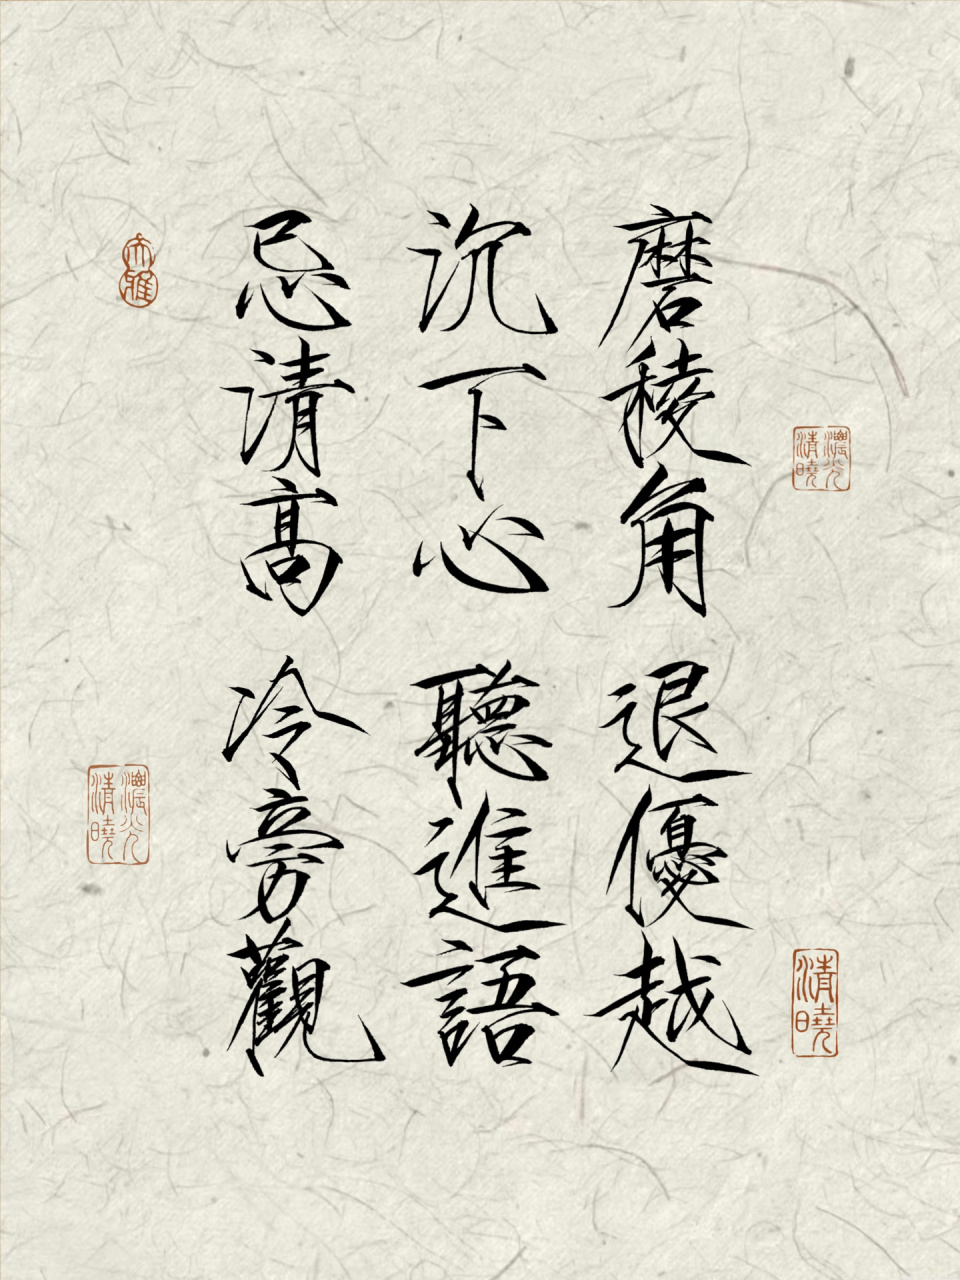 磨稜角 退優越
沉下心 聽進語
忌清高 冷旁觀
清曉
清曉
清曉